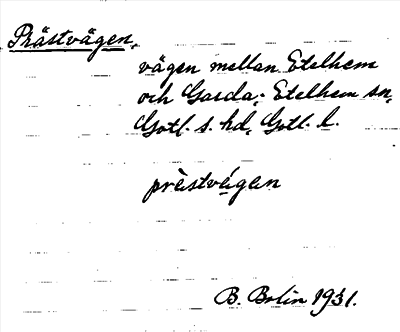 Prästvägen,
vägen mellan Etelhem
och Garda; Etelhem sn,
Gotl. s. hd, Gotl. l.
prèstvé̜gen
B. Bolin 1931.